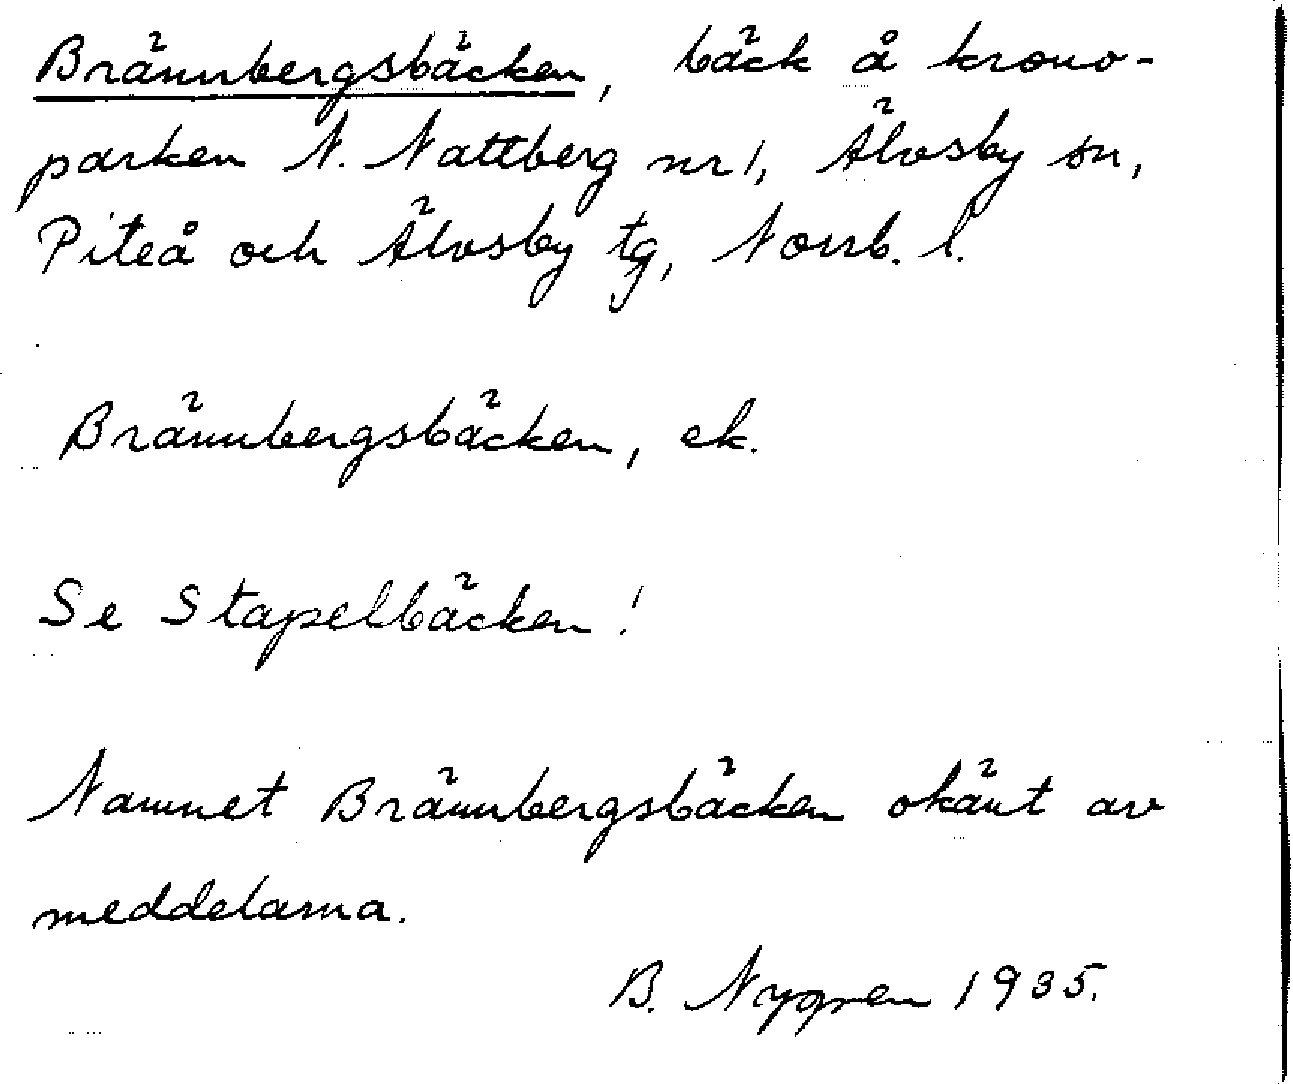 Brännbergsbäcken, bäck å krono-
parken N. Nattberg nr 1, Älvsby sn,
Piteå och Älvsby tg, Norrb. l.
Brännbergsbäcken, ek.
Se Stapelbäcken!
Namnet Brännbergsbäcken okänt av
meddelarna.
B. Nygren 1935.